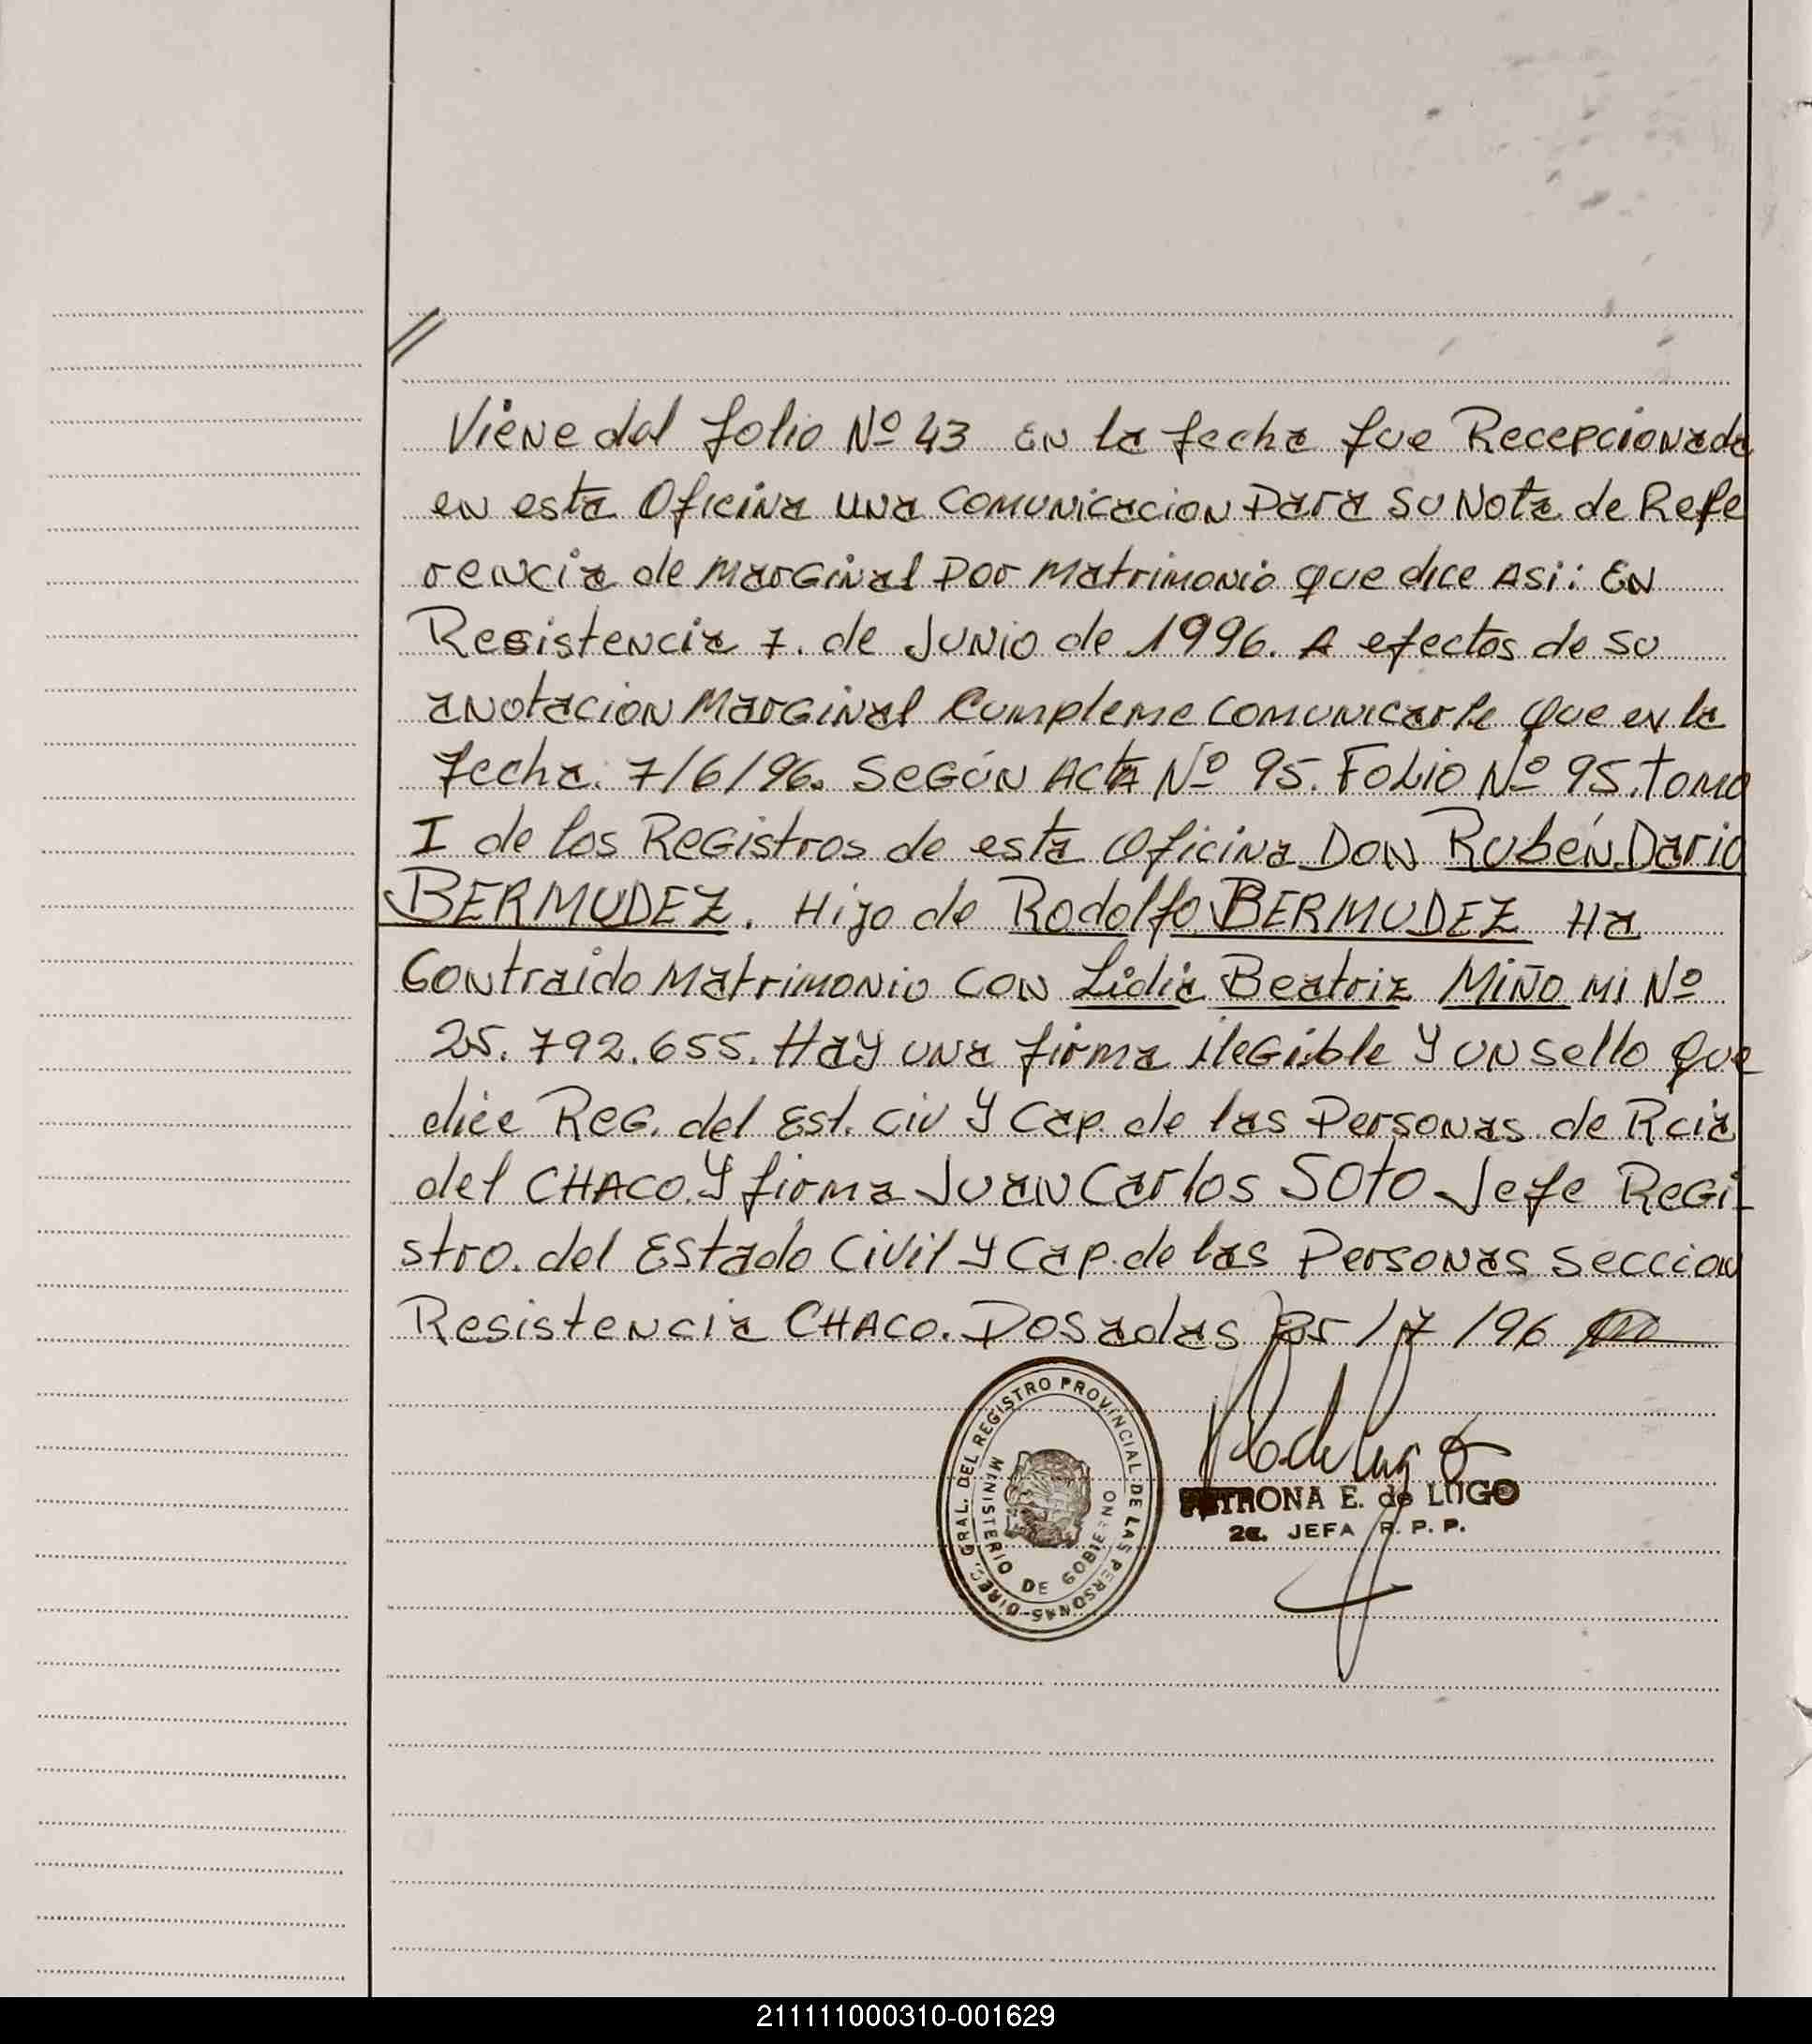 //
Viene del folio Nº 43 En la fecha fue Recepcionada
en esta Oficina una comunicacion Para su Nota de Refe
rencia de Marginal Por Matrimonio que dice Asi: EN
Resistencia 7. de Junio de 1996. A efectos de su
anotacion Marginal Cumpleme comunicarle que en la
fecha. 7/6/96. SEGÚN Acta Nº 95. Folio Nº 95. tomo
I de los Registros de esta Oficina Don Rubén Dario
BERMUDEZ. Hijo de Rodolfo BERMUDEZ Ha
Contraido Matrimonio con Lidia Beatriz MIÑO MI Nº
25.792.655. Hay una firma ilegible y un sello que
dice Reg. del Est. civ y Cap. de las Personas de Rcia
del CHACO. y firma Juan Carlos SOTO Jefe Regi-
stro. del Estado Civil y Cap. de las Personas seccion
Resistencia CHACO. Posadas /7 /96
DIREC. GRAL. DEL REGISTRO PROVINCIAL DE LAS PERSONAS
MINISTERIO DE GOBIERNO
PETRONA E. de LUGO
2a. JEFA R. P. P.
211111000310-001629